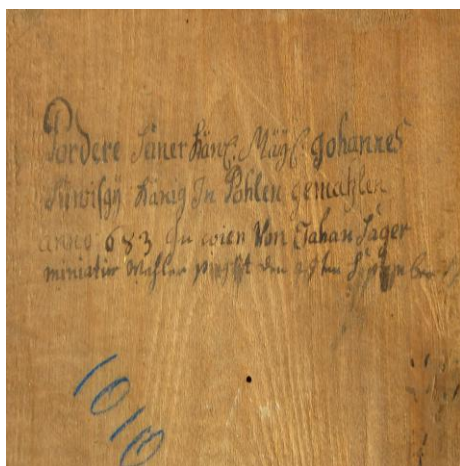 Pordere Seiner Käng: Mäÿ: Johannes
Känig In Pohlen gemahlen
anno 683 Zu wien Von Jahan Jager
miniatür Mahler den
1010